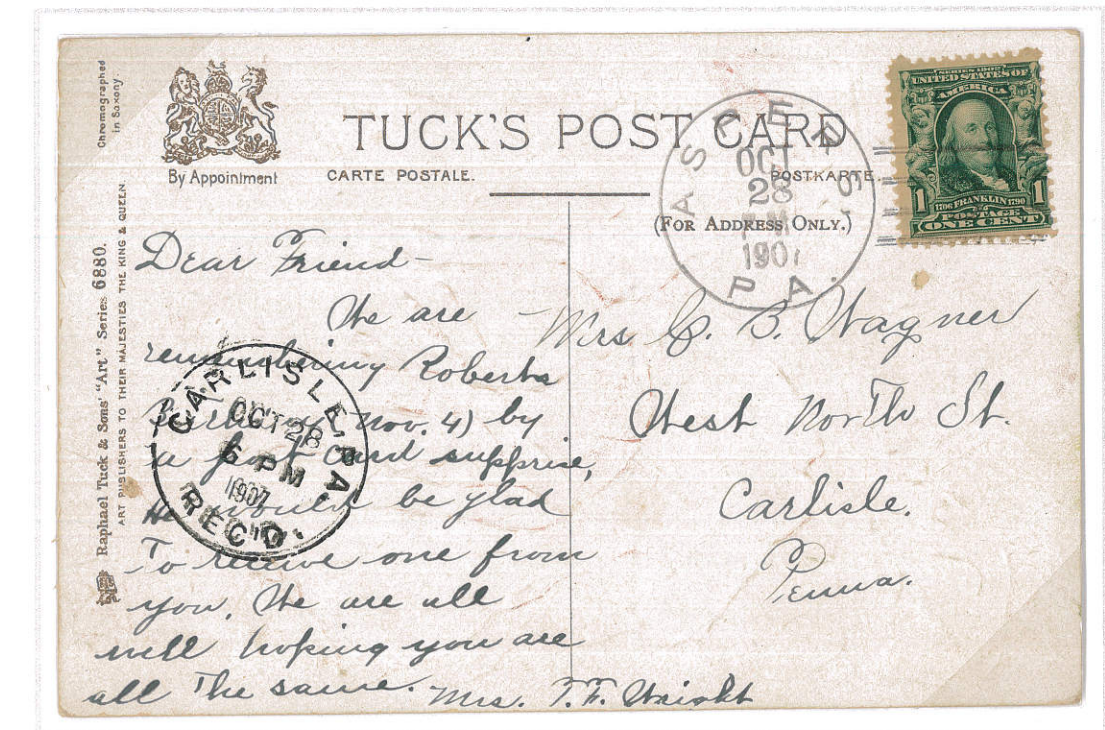 Chromographed
in Saxony
By Appointment
TUCK'S POST CARD
CARTE POSTALE.
POSTKARTE.
(FOR ADDRESS ONLY.)
ASPERS.
OCT
28
PM
1907
PA.
SERIES 1902
UNITED STATES OF
AMERICA
1 1
1706 FRANKLIN 1790
POSTAGE
ONE CENT
Raphael Tuck & Sons' "Art" Series 6880.
ART PUBLISHERS TO THEIR MAJESTIES THE KING & QUEEN.
Dear Friend-
We are
remembering Roberts
Birthday (Nov. 4) by
a post card supprise,
He would be glad
To receive one from
you. We are all
well hoping you are
all The same. Mrs. T.F. Wright
CARLISLE, PA.
OCT 28
6 PM
1907
REC'D.
Mrs C. B. Wagner
West North St.
Carlisle.
Penna.